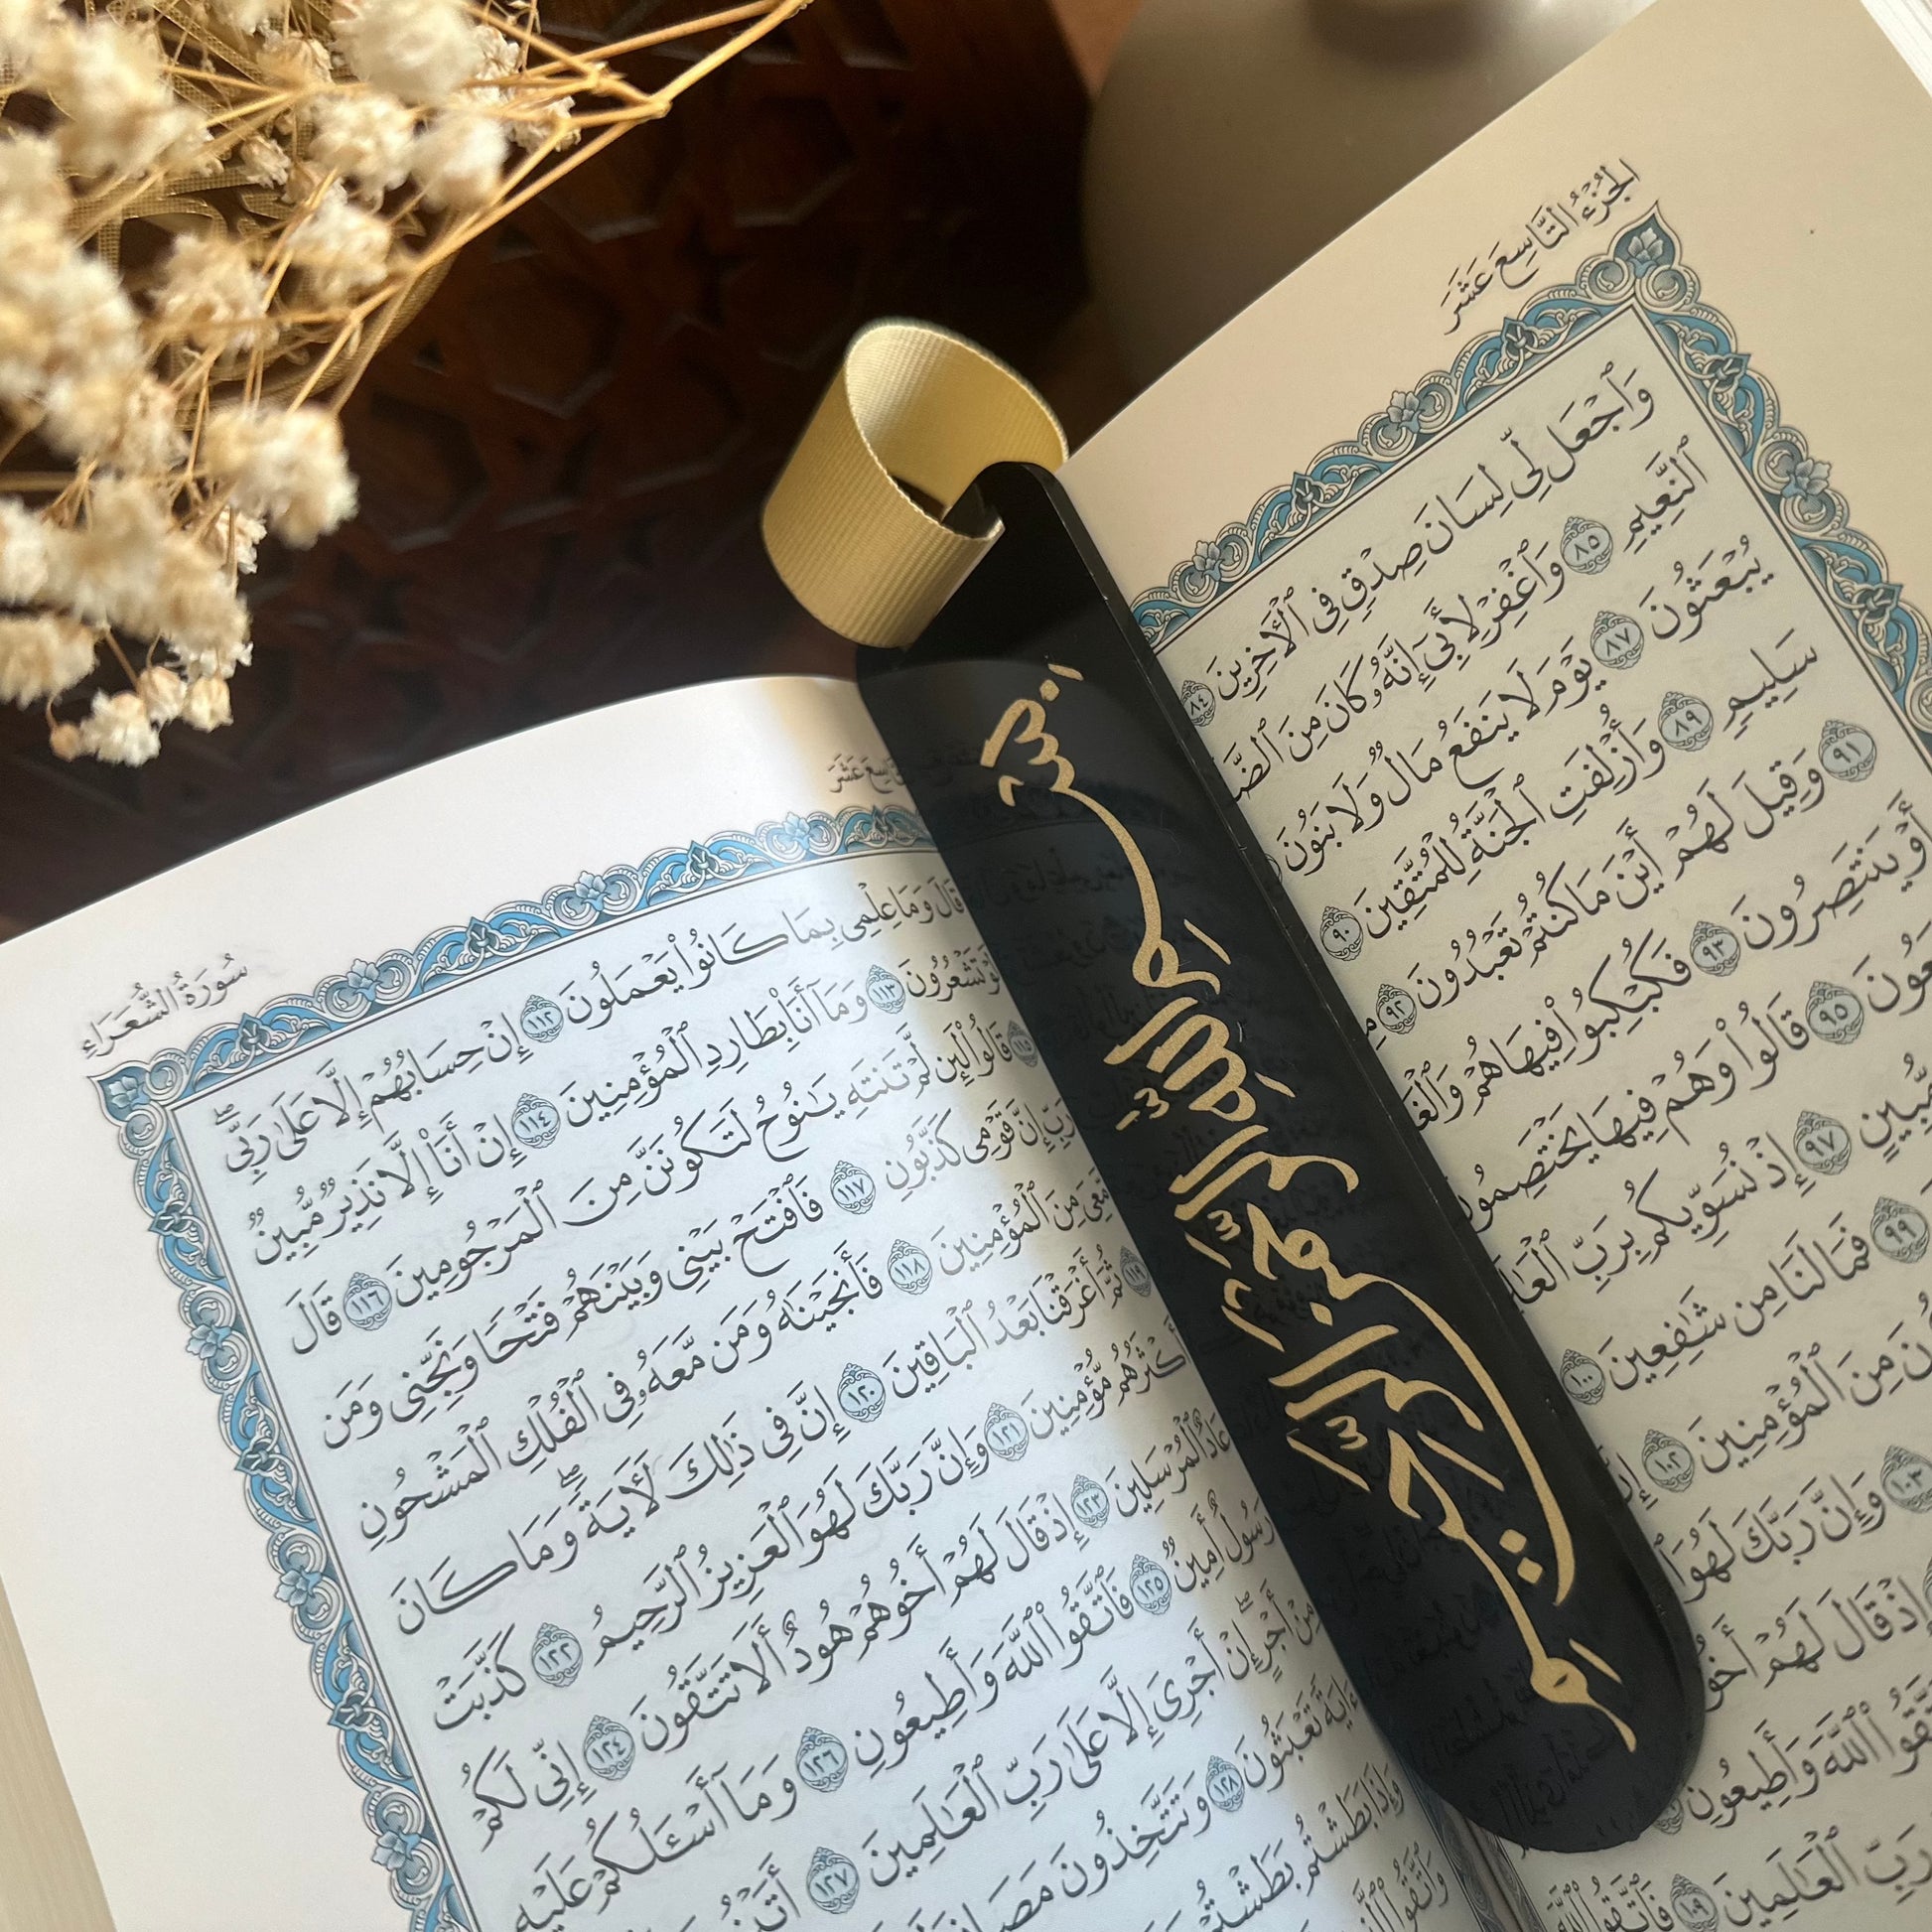 الجُزْءُ التَّاسِعَ عَشَرَ
وَٱجْعَل لِّي لِسَانَ صِدْقٍ فِي ٱلْآخِرِينَ ٨٤
ٱلنَّعِيمِ ٨٥ وَٱغْفِرْ لِأَبِيٓ إِنَّهُۥ كَانَ مِنَ
يُبْعَثُونَ ٨٧ يَوْمَ لَا يَنفَعُ مَالٌ وَلَا بَنُونَ
سَلِيمٍ ٨٩ وَأُزْلِفَتِ ٱلْجَنَّةُ لِلْمُتَّقِينَ ٩٠
٩١ وَقِيلَ لَهُمْ أَيْنَ مَا كُنتُمْ تَعْبُدُونَ ٩٢
أَوْ يَنتَصِرُونَ ٩٣ فَكُبْكِبُوا۟ فِيهَا هُمْ
٩٥ قَالُوا۟ وَهُمْ فِيهَا يَخْتَصِمُونَ
مُّبِينٍ ٩٧ إِذْ نُسَوِّيكُم بِرَبِّ
٩٩ فَمَا لَنَا مِن شَٰفِعِينَ ١٠٠
مِنَ ٱلْمُؤْمِنِينَ ١٠٢
١٠٣ وَإِنَّ رَبَّكَ لَهُوَ
إِذْ قَالَ لَهُمْ
ٱللَّهَ وَأَطِيعُونِ
رَبِّ ٱلْعَٰلَمِينَ ١٠٩ فَٱتَّقُوا۟ ٱللَّهَ
بسم الله الرحمن الرحيم
سُورَةُ الشُّعَرَاءِ
قَالَ وَمَا عِلْمِي بِمَا كَانُوا۟ يَعْمَلُونَ ١١٢ إِنْ حِسَابُهُمْ إِلَّا عَلَىٰ رَبِّي
لَوْ تَشْعُرُونَ ١١٣ وَمَآ أَنَا۠ بِطَارِدِ ٱلْمُؤْمِنِينَ ١١٤ إِنْ أَنَا۠ إِلَّا نَذِيرٌ مُّبِينٌ
١١٥ قَالُوا۟ لَئِن لَّمْ تَنتَهِ يَٰنُوحُ لَتَكُونَنَّ مِنَ ٱلْمَرْجُومِينَ ١١٦ قَالَ
رَبِّ إِنَّ قَوْمِي كَذَّبُونِ ١١٧ فَٱفْتَحْ بَيْنِي وَبَيْنَهُمْ فَتْحًا وَنَجِّنِي وَمَن
مَّعِيَ مِنَ ٱلْمُؤْمِنِينَ ١١٨ فَأَنجَيْنَٰهُ وَمَن مَّعَهُۥ فِي ٱلْفُلْكِ ٱلْمَشْحُونِ
١١٩ ثُمَّ أَغْرَقْنَا بَعْدُ ٱلْبَاقِينَ ١٢٠ إِنَّ فِي ذَٰلِكَ لَآيَةً وَمَا كَانَ
أَكْثَرُهُم مُّؤْمِنِينَ ١٢١ وَإِنَّ رَبَّكَ لَهُوَ ٱلْعَزِيزُ ٱلرَّحِيمُ ١٢٢ كَذَّبَتْ
عَادٌ ٱلْمُرْسَلِينَ ١٢٣ إِذْ قَالَ لَهُمْ أَخُوهُمْ هُودٌ أَلَا تَتَّقُونَ ١٢٤ إِنِّي لَكُمْ
رَسُولٌ أَمِينٌ ١٢٥ فَٱتَّقُوا۟ ٱللَّهَ وَأَطِيعُونِ ١٢٦ وَمَآ أَسْـَٔلُكُمْ عَلَيْهِ
مِنْ أَجْرٍ إِنْ أَجْرِيَ إِلَّا عَلَىٰ رَبِّ ٱلْعَٰلَمِينَ ١٢٧
ءَايَةً تَعْبَثُونَ ١٢٨ وَتَتَّخِذُونَ
وَإِذَا بَطَشْتُم بَطَشْتُمْ